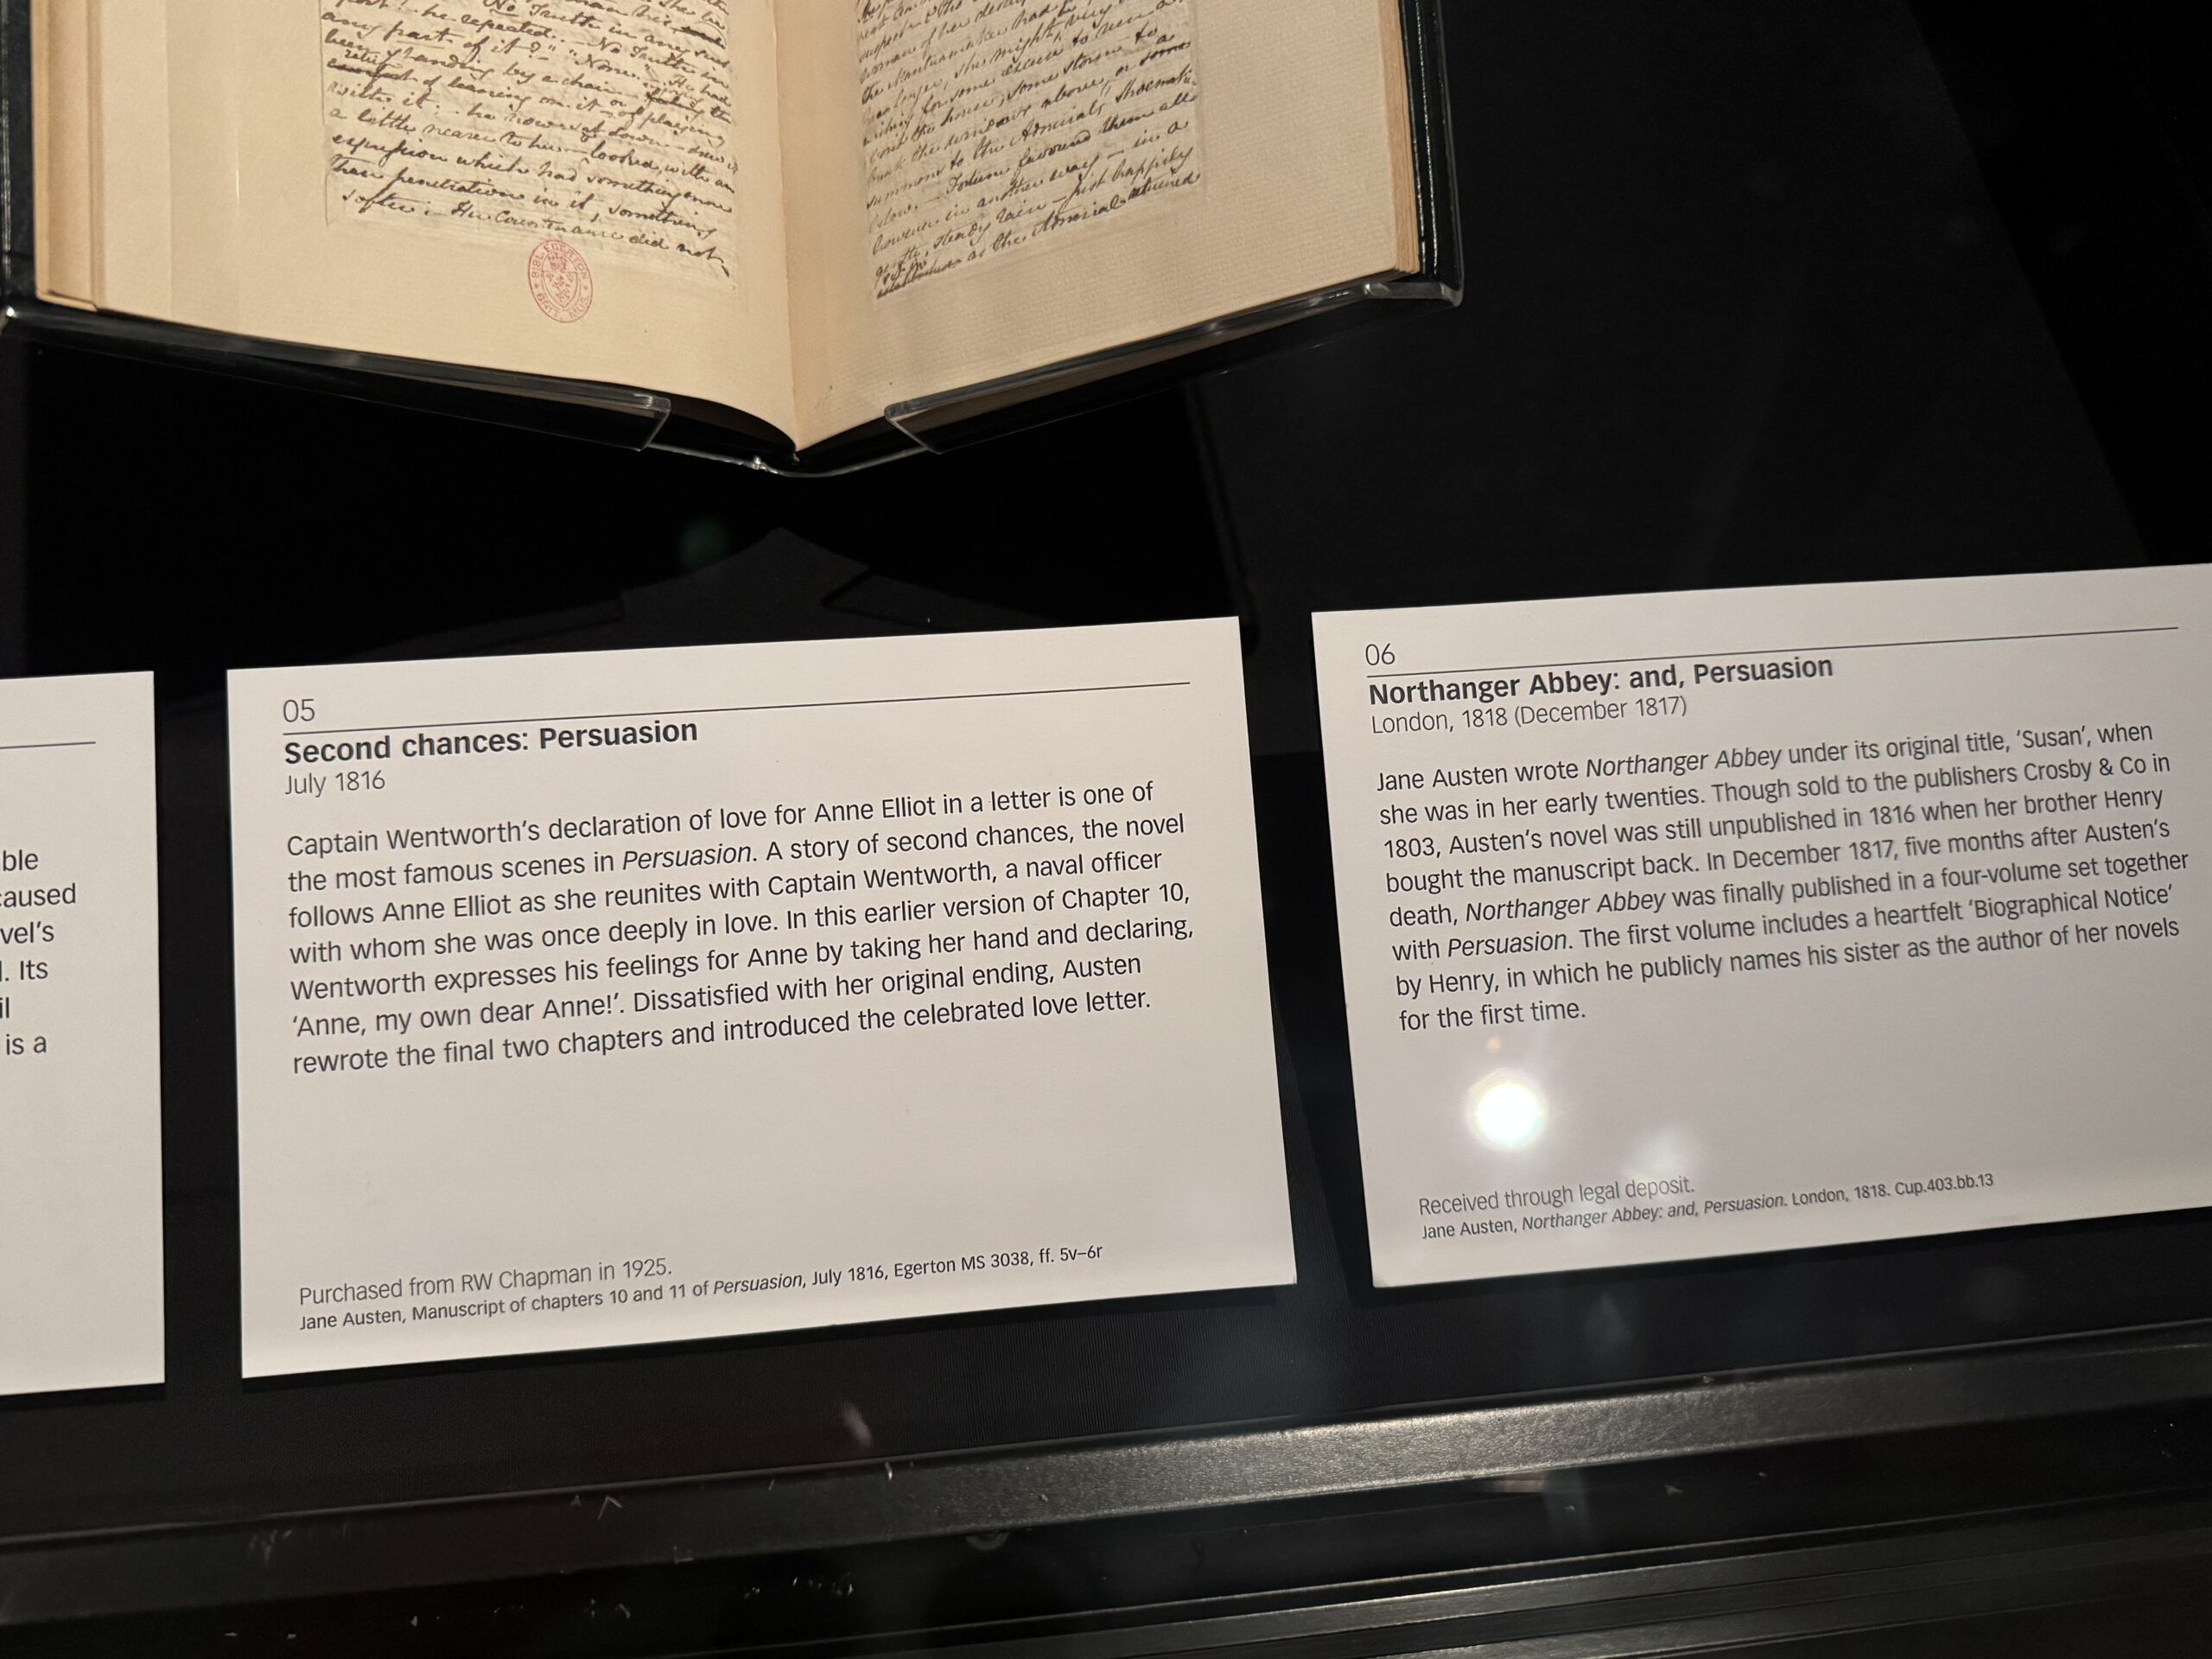 No Truth in any such
part! he repeated. — No Truth in
any part of it?" — "None." — He had
been standing by a chair
relief
of leaning on it — or of playing
with it; — he now sat down — drew it
a little nearer to her — & looked, with an
expression which had something more
than penetration in it, something
softer; — Her Countenance did not
BIBL. EGERTON
BRIT. MUS.
woman of her
the Mantuamaker had
longer, she might very
wishing for some excuse to run
about the house, some storm to
break the windows above, or
summons to the Admiral's Shoemaker
below. — Fortune favoured them all
however in another way — in a
gentle, steady rain — just happily
set in
as the Admiral returned
05
Second chances: Persuasion
July 1816
Captain Wentworth's declaration of love for Anne Elliot in a letter is one of
the most famous scenes in Persuasion. A story of second chances, the novel
follows Anne Elliot as she reunites with Captain Wentworth, a naval officer
with whom she was once deeply in love. In this earlier version of Chapter 10,
Wentworth expresses his feelings for Anne by taking her hand and declaring,
'Anne, my own dear Anne!'. Dissatisfied with her original ending, Austen
rewrote the final two chapters and introduced the celebrated love letter.
Purchased from RW Chapman in 1925.
Jane Austen, Manuscript of chapters 10 and 11 of Persuasion, July 1816, Egerton MS 3038, ff. 5v–6r
06
Northanger Abbey: and, Persuasion
London, 1818 (December 1817)
Jane Austen wrote Northanger Abbey under its original title, 'Susan', when
she was in her early twenties. Though sold to the publishers Crosby & Co in
1803, Austen's novel was still unpublished in 1816 when her brother Henry
bought the manuscript back. In December 1817, five months after Austen's
death, Northanger Abbey was finally published in a four-volume set together
with Persuasion. The first volume includes a heartfelt 'Biographical Notice'
by Henry, in which he publicly names his sister as the author of her novels
for the first time.
Received through legal deposit.
Jane Austen, Northanger Abbey: and, Persuasion. London, 1818. Cup.403.bb.13
ble
caused
vel's
. Its
il
is a